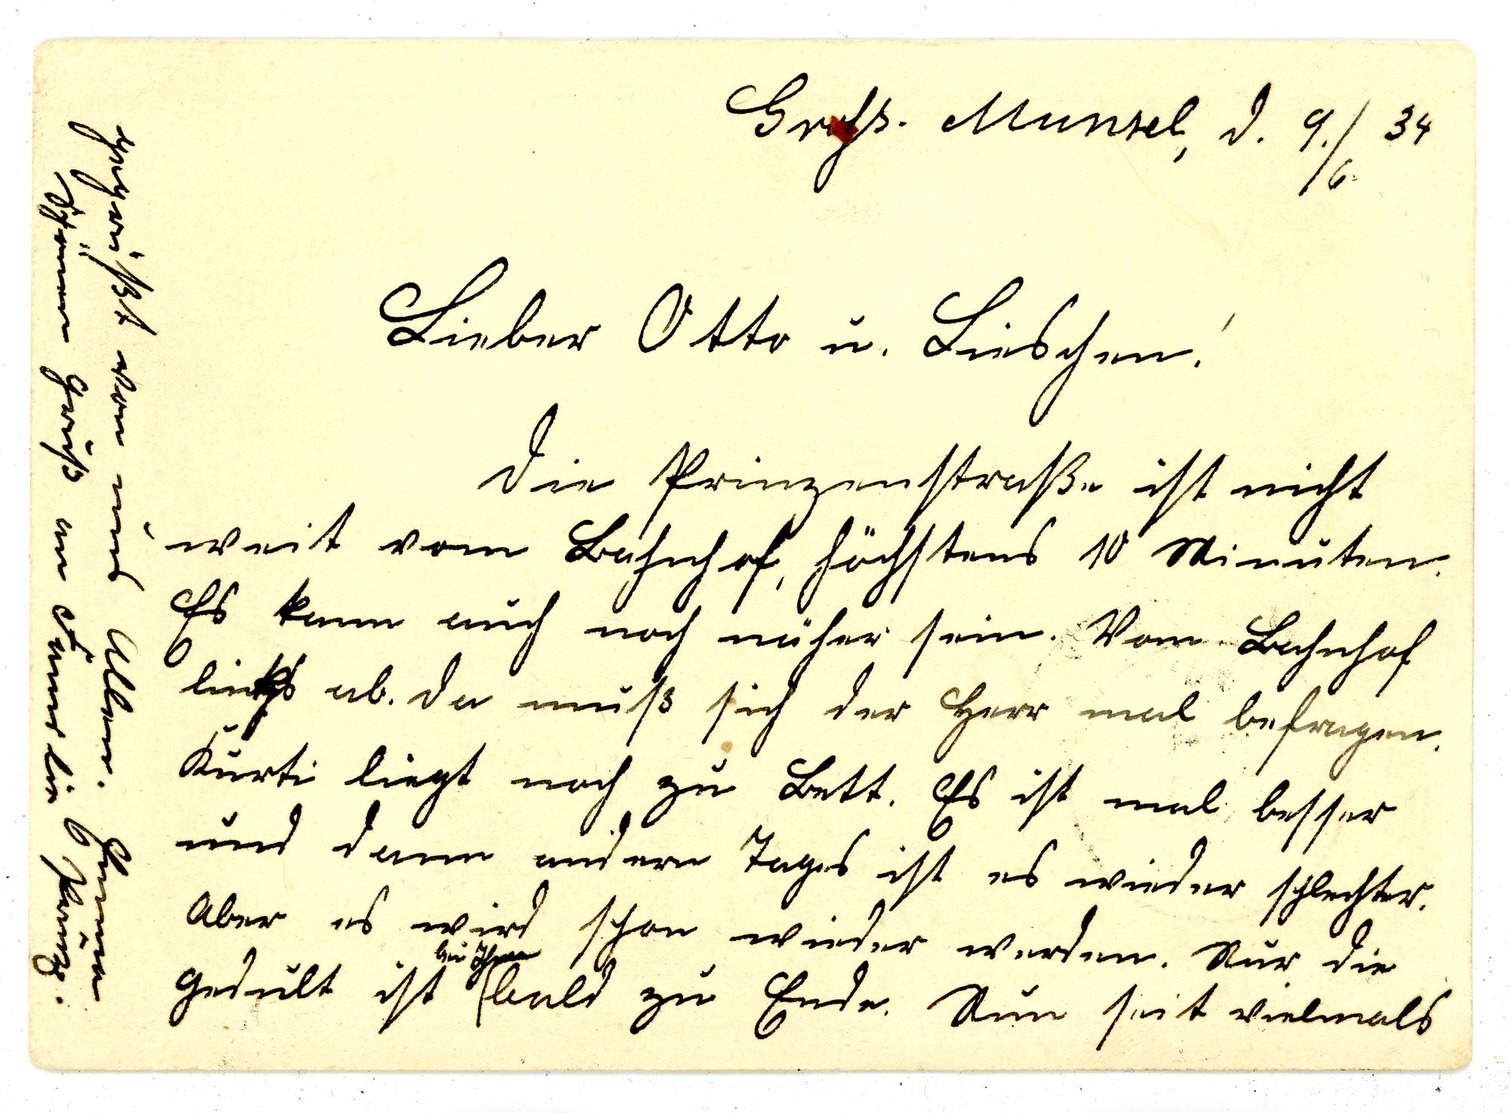 Groß. Munzel, d. 9./6. 34
Lieber Otto u. Lieschen!
Die Prinzenstraße ist nicht
weit vom Bahnhof, höchstens 10 Minuten.
Es kann auch noch näher sein. Vom Bahnhof
links ab. Da muß sich der Herr mal befragen.
Kurti liegt noch zu Bett. Es ist mal besser
und dann andern Tages ist es wieder schlechter.
Aber es wird schon wieder werden. Nur die
bei Ihm
Gedult ist bald zu Ende. Nun seit vielmals
gegrüßt von uns Allen.
Schönen Gruß an